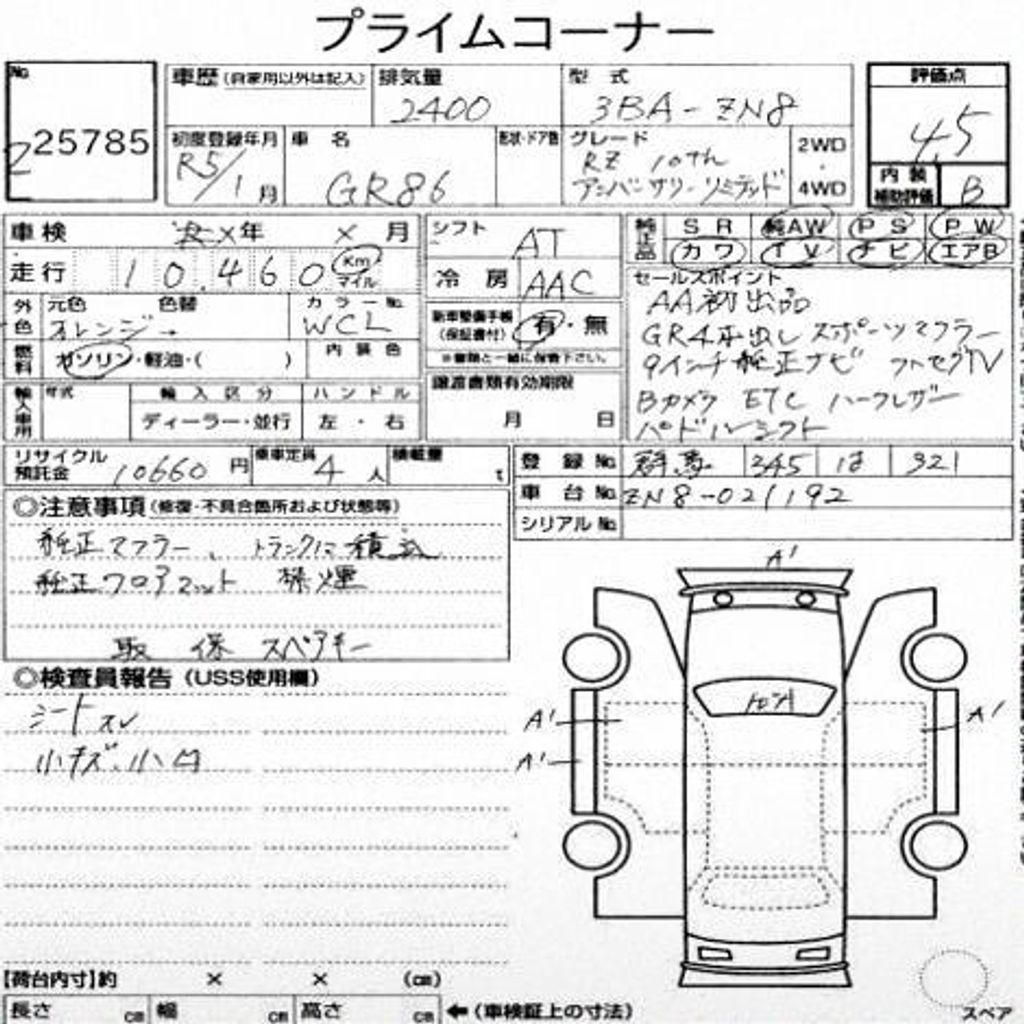 プライムコーナー
No.
225785
車歴 (自家用以外は記入)
排気量
2400
型 式
3BA-ZN8
評価点
4.5
初度登録年月
R5/1 月
車 名
GR86
形状・ドア数
グレード
RZ 10th
アニバーサリーリミテッド
2WD
・
4WD
内装
補助評価
B
車検
年 × 月
シフト
AT
純正品
SR
純AW
PS
PW
カワ
TV
ナビ
エアB
走行
10,460
Km
マイル
冷 房
AAC
セールスポイント
AA初出品
GR4本出し スポーツマフラー
9インチ純正ナビ フルセグTV
Bカメラ ETC ハーフレザー
パドルシフト
外色
元色
オレンジ→
色替
カラーNo.
WCL
新車整備手帳
(保証書付)
有・無
※書類と一緒に保管下さい。
燃料
ガソリン・軽油・( )
内装色
輸入車用
年式
輸入区分
ディーラー・並行
ハンドル
左・右
譲渡書類有効期限
月 日
リサイクル
預託金
10660 円
乗車定員
4 人
積載量
t
登録 No.
群馬 345 は 321
車台 No.
ZN8-021192
シリアル No.
◎注意事項 (修復・不具合箇所および状態等)
純正マフラー、トランクに積込
純正フロアマット 禁煙
取 保 スペアキー
◎検査員報告 (USS使用欄)
シートスレ
小キズ・小凹
A'
A'
A'
A'
【荷台内寸】約 × × (cm)
長さ cm
幅 cm
高さ cm
←(車検証上の寸法)
スペア